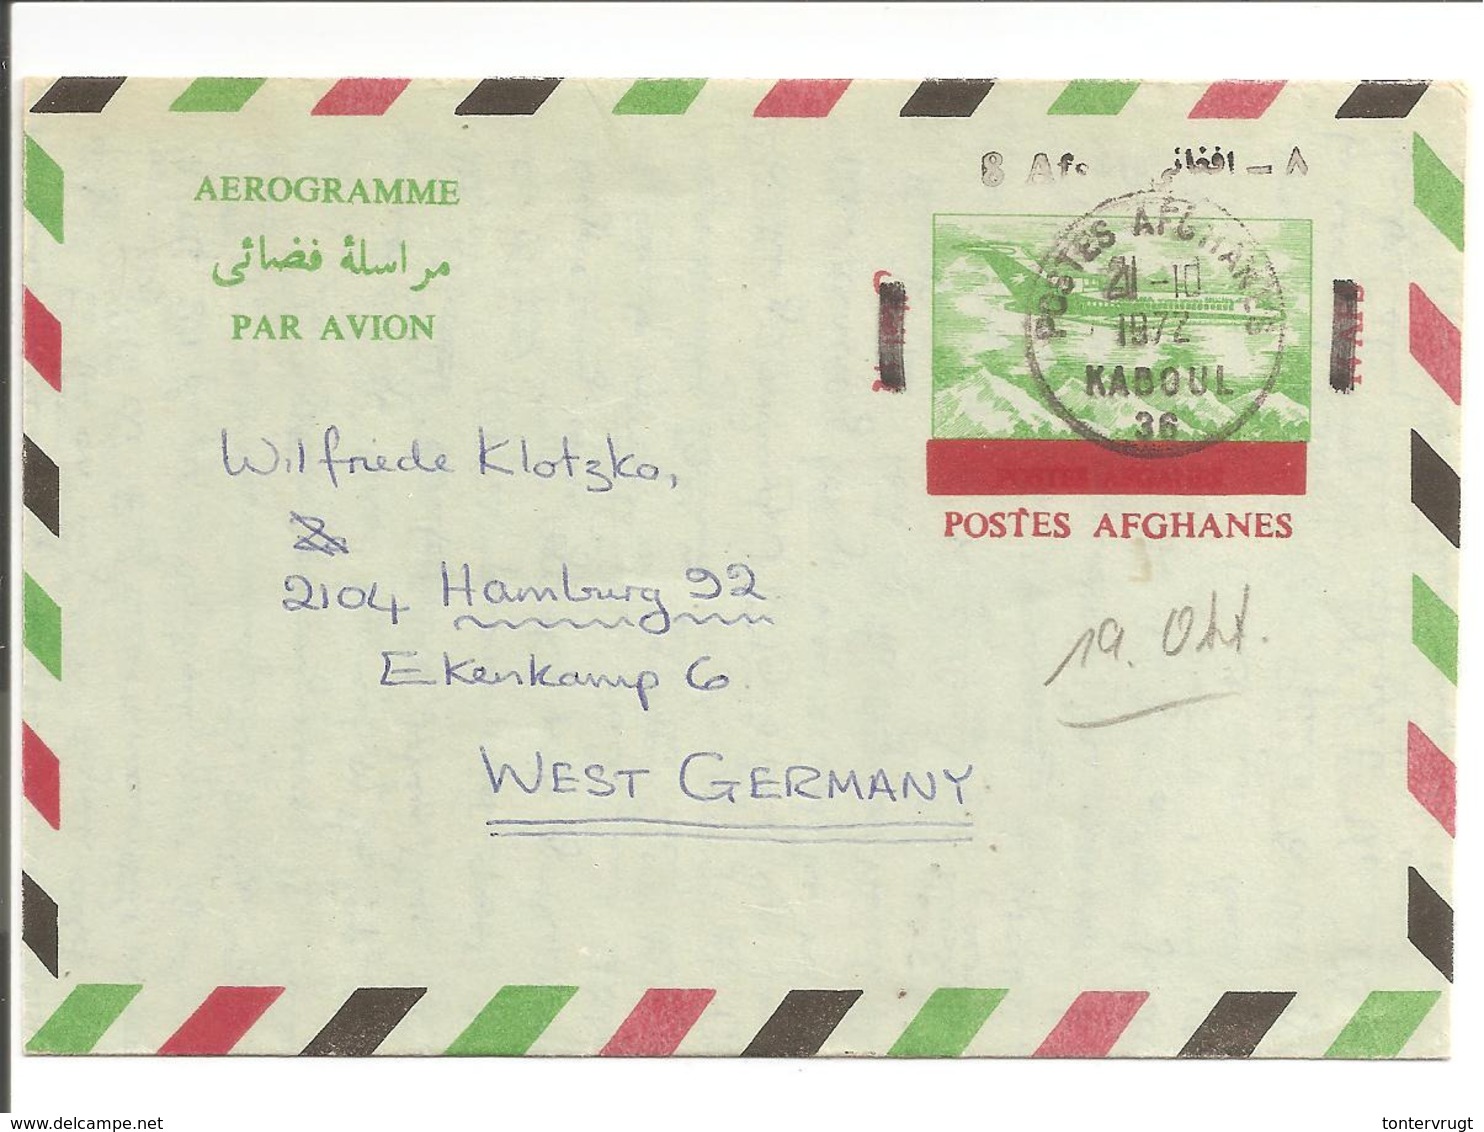 8 Afs ۸ – افغانی
AEROGRAMME
مراسلهٔ فضائی
PAR AVION
POSTES AFGHANES
21 - 10
1972
KABOUL
36
POSTES AFGHANES
Wilfriede Klotzko,
2104 Hamburg 92
Ekenkamp 6
WEST GERMANY
19. Okt.
delcampe.net
tontervrugt